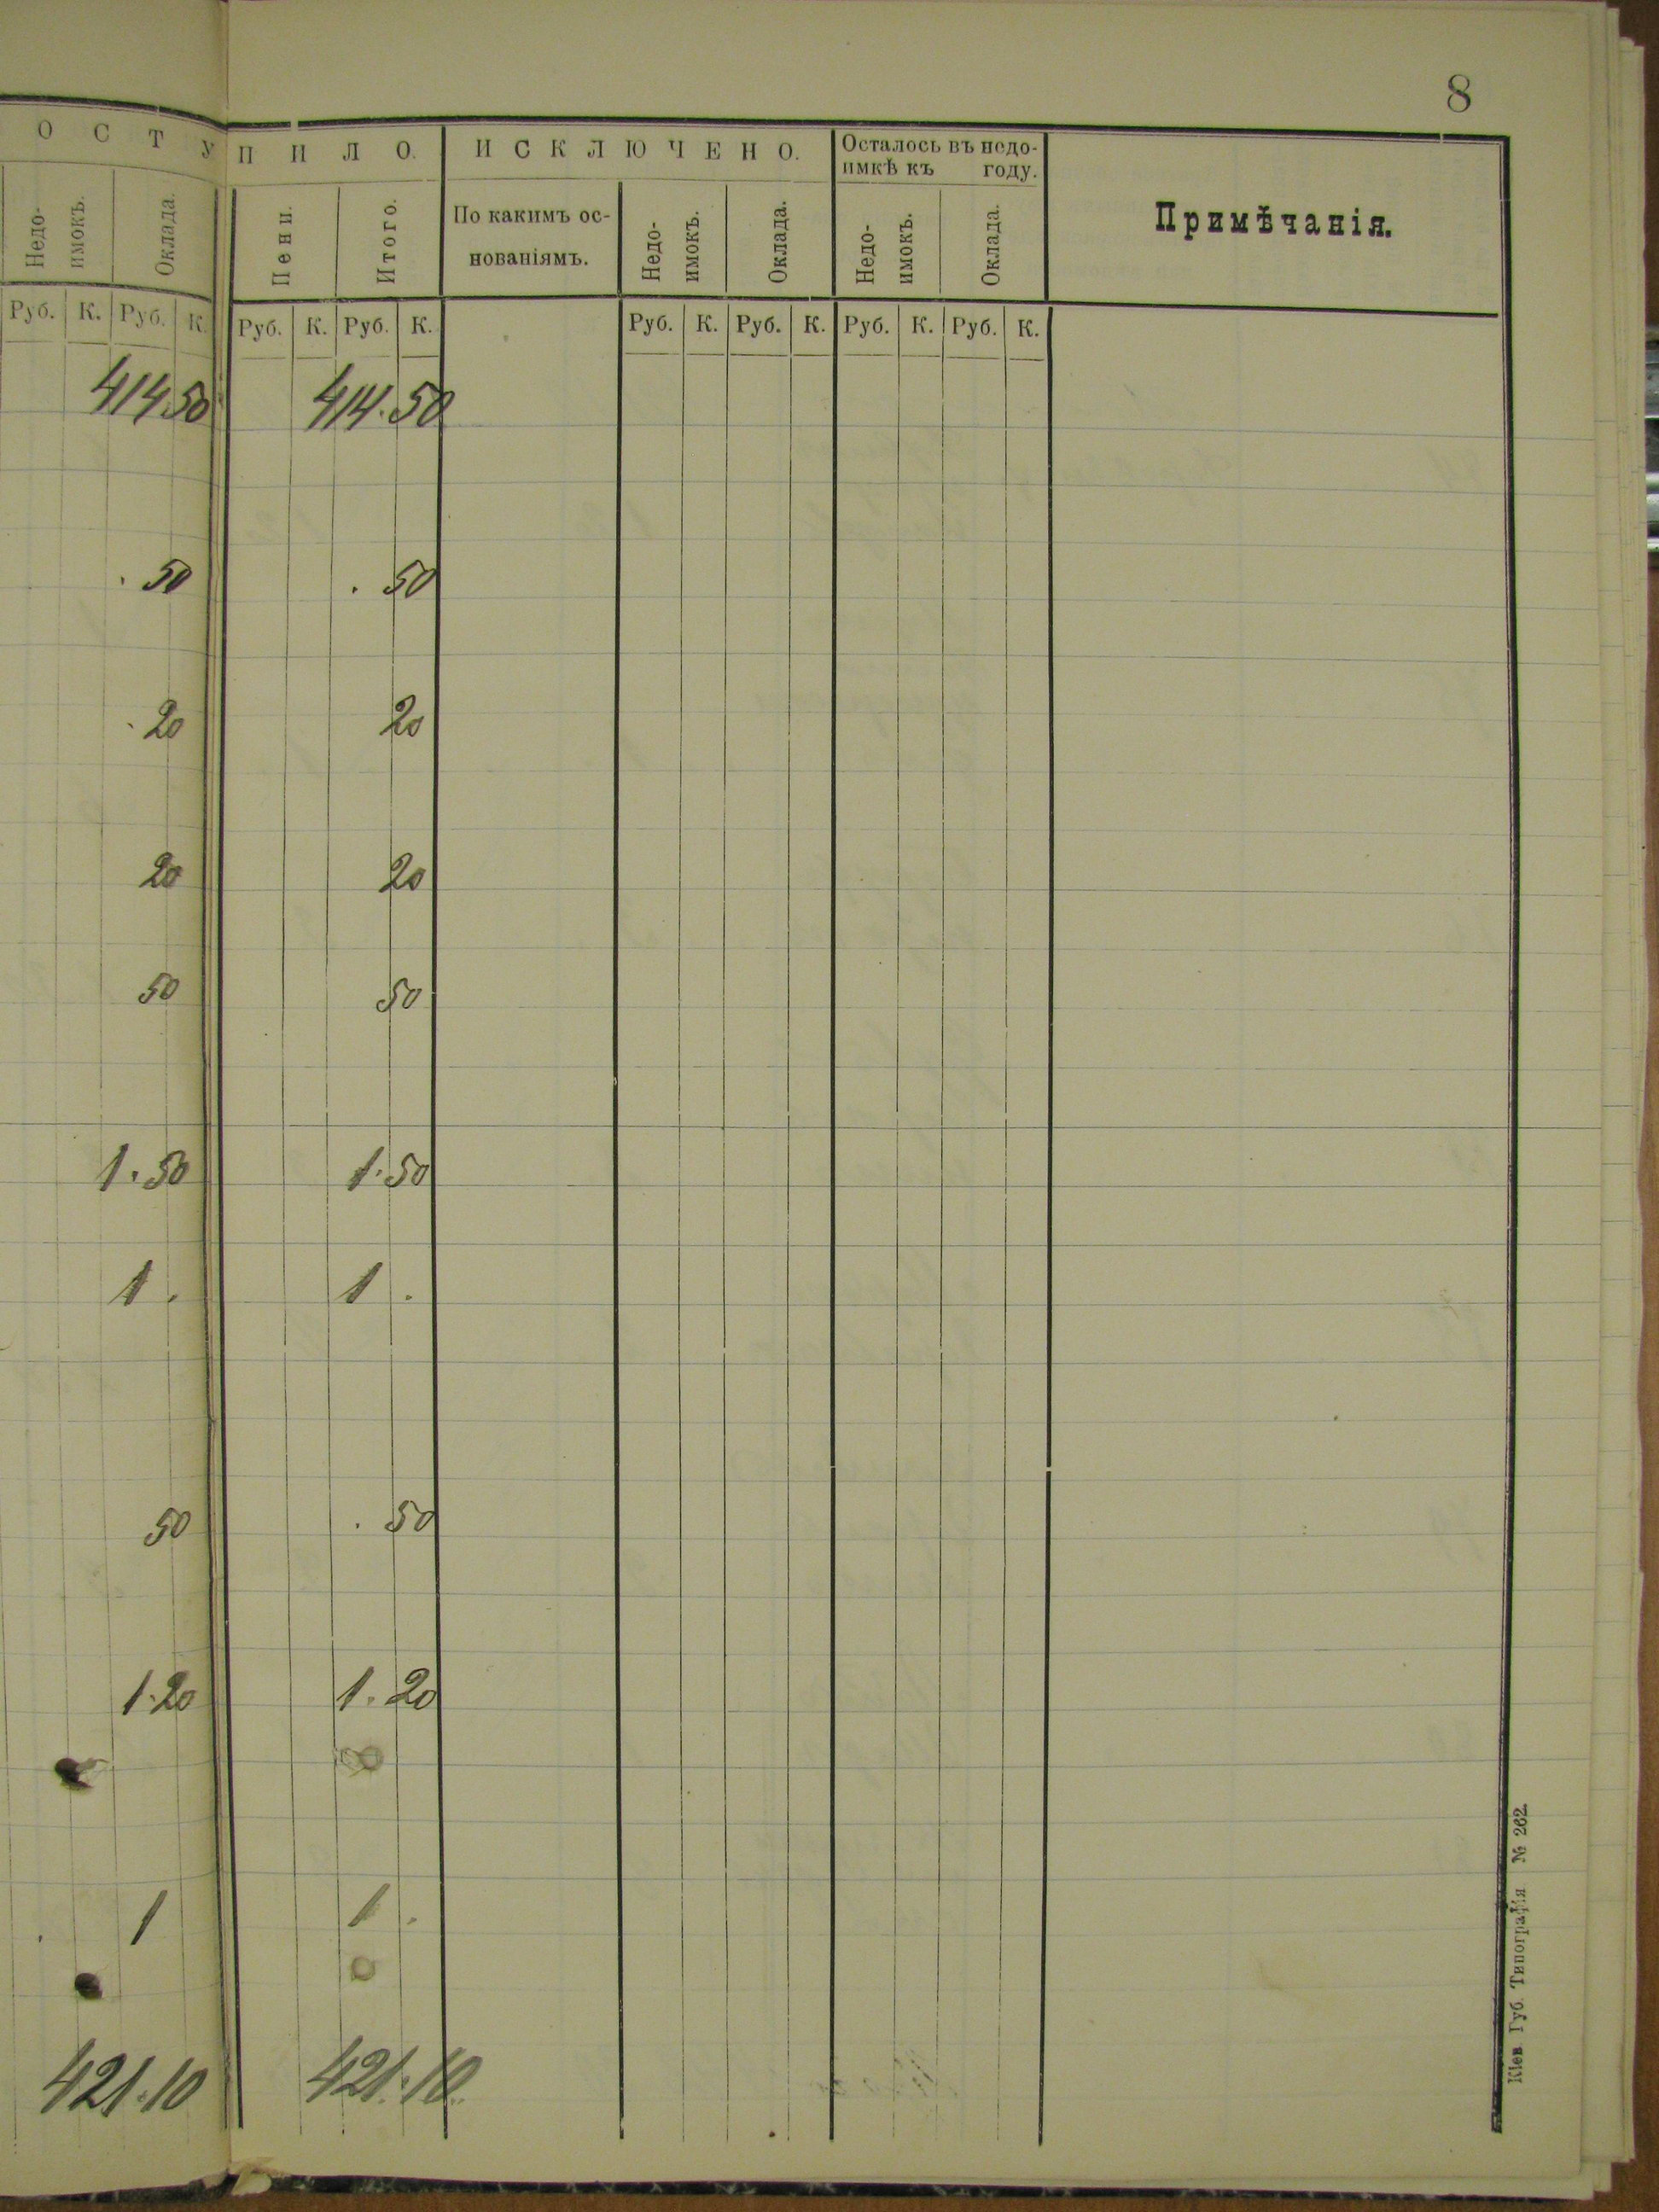 8
ОСТУПИЛО. ИСКЛЮЧЕНО. Осталось въ недо-
имкѣ къ году.
Недо-
имокъ. Оклада. Пени. Итого. По какимъ ос-
нованіямъ. Недо-
имокъ. Оклада. Недо-
имокъ. Оклада. Примѣчанія.
Руб. К. Руб. К. Руб. К. Руб. К. Руб. К. Руб. К. Руб. К. Руб. К.
414 50 414.50
. 50 . 50
. 20 20
20 20
50 50
1.50 1.50
1 . 1 .
50 . 50
1.20 1.20
1 1 .
421.10 421.10
Кіев. Губ. Типографія № 262.